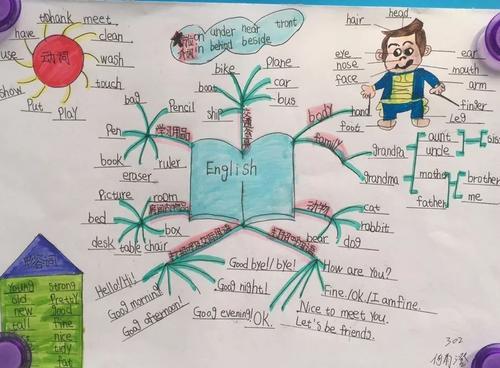 thank meet
have
clean
use
动词
wash
show
touch
Put PlAY
on under near front
in behind beside
介词
head
hair
eye
ear
nose
mouth
face
arm
hand
finger
foot
Leg
bike
plane
boat
car
ship
bus
交通工具
bag
Pencil
Pen
学习用品
book
ruler
eraser
English
body
family
grandpa
aunt
uncle
sis
grandma
mother
brother
father
me
Picture
room
bed
box
desk
table
chair
动物
cat
rabbit
bear
dog
Hello!/Hi!
Good morning!
Good afternoon!
Good bye!/bye!
Good night!
Good evening!
OK.
How are You?
Fine./OK./I am fine.
Nice to meet you.
Let's be friends.
形容词
young strong
old Pretty
new good
tall fine
nice
tidy
fat
302